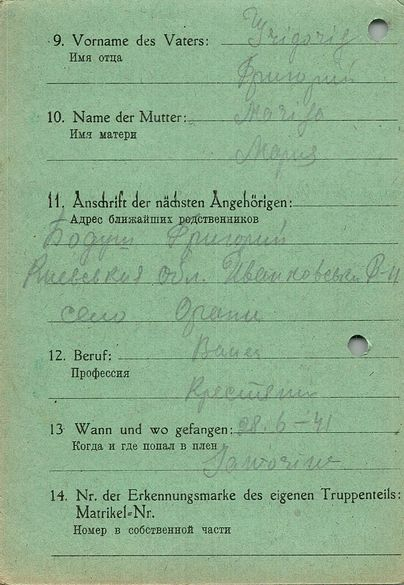 9. Vorname des Vaters: Grigorig
Имя отца
Григорий
10. Name der Mutter: Marija
Имя матери
Мария
11. Anschrift der nächsten Angehörigen:
Адрес ближайших родственников
Бодуш Григорий
Киевская обл. Иванковський Р-н
село
12. Beruf: Bauer
Профессия
Крестянин
13 Wann und wo gefangen: 28.6-41
Когда и где попал в плен
14. Nr. der Erkennungsmarke des eigenen Truppenteils:
Matrikel-Nr.
Номер в собственной части